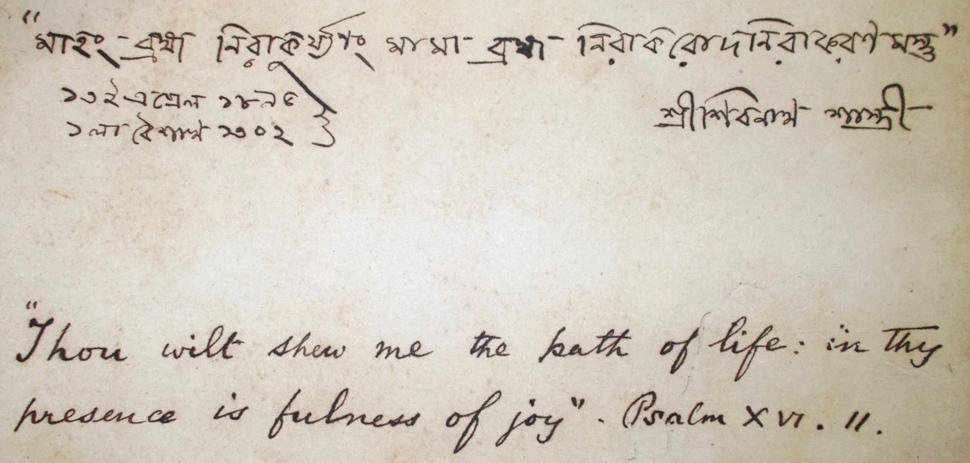 "মাহং ব্রহ্ম নিরাকুর্য্যাং মামা ব্রহ্ম নিরাকরোদনিরাকরণমস্তু"
১৩ই এপ্রেল ১৮৯৫
১লা বৈশাখ ১৩০২
শ্রীশিবনাথ শাস্ত্রী
"Thou wilt shew me the path of life: in thy
presence is fulness of joy". Psalm XVI. 11.